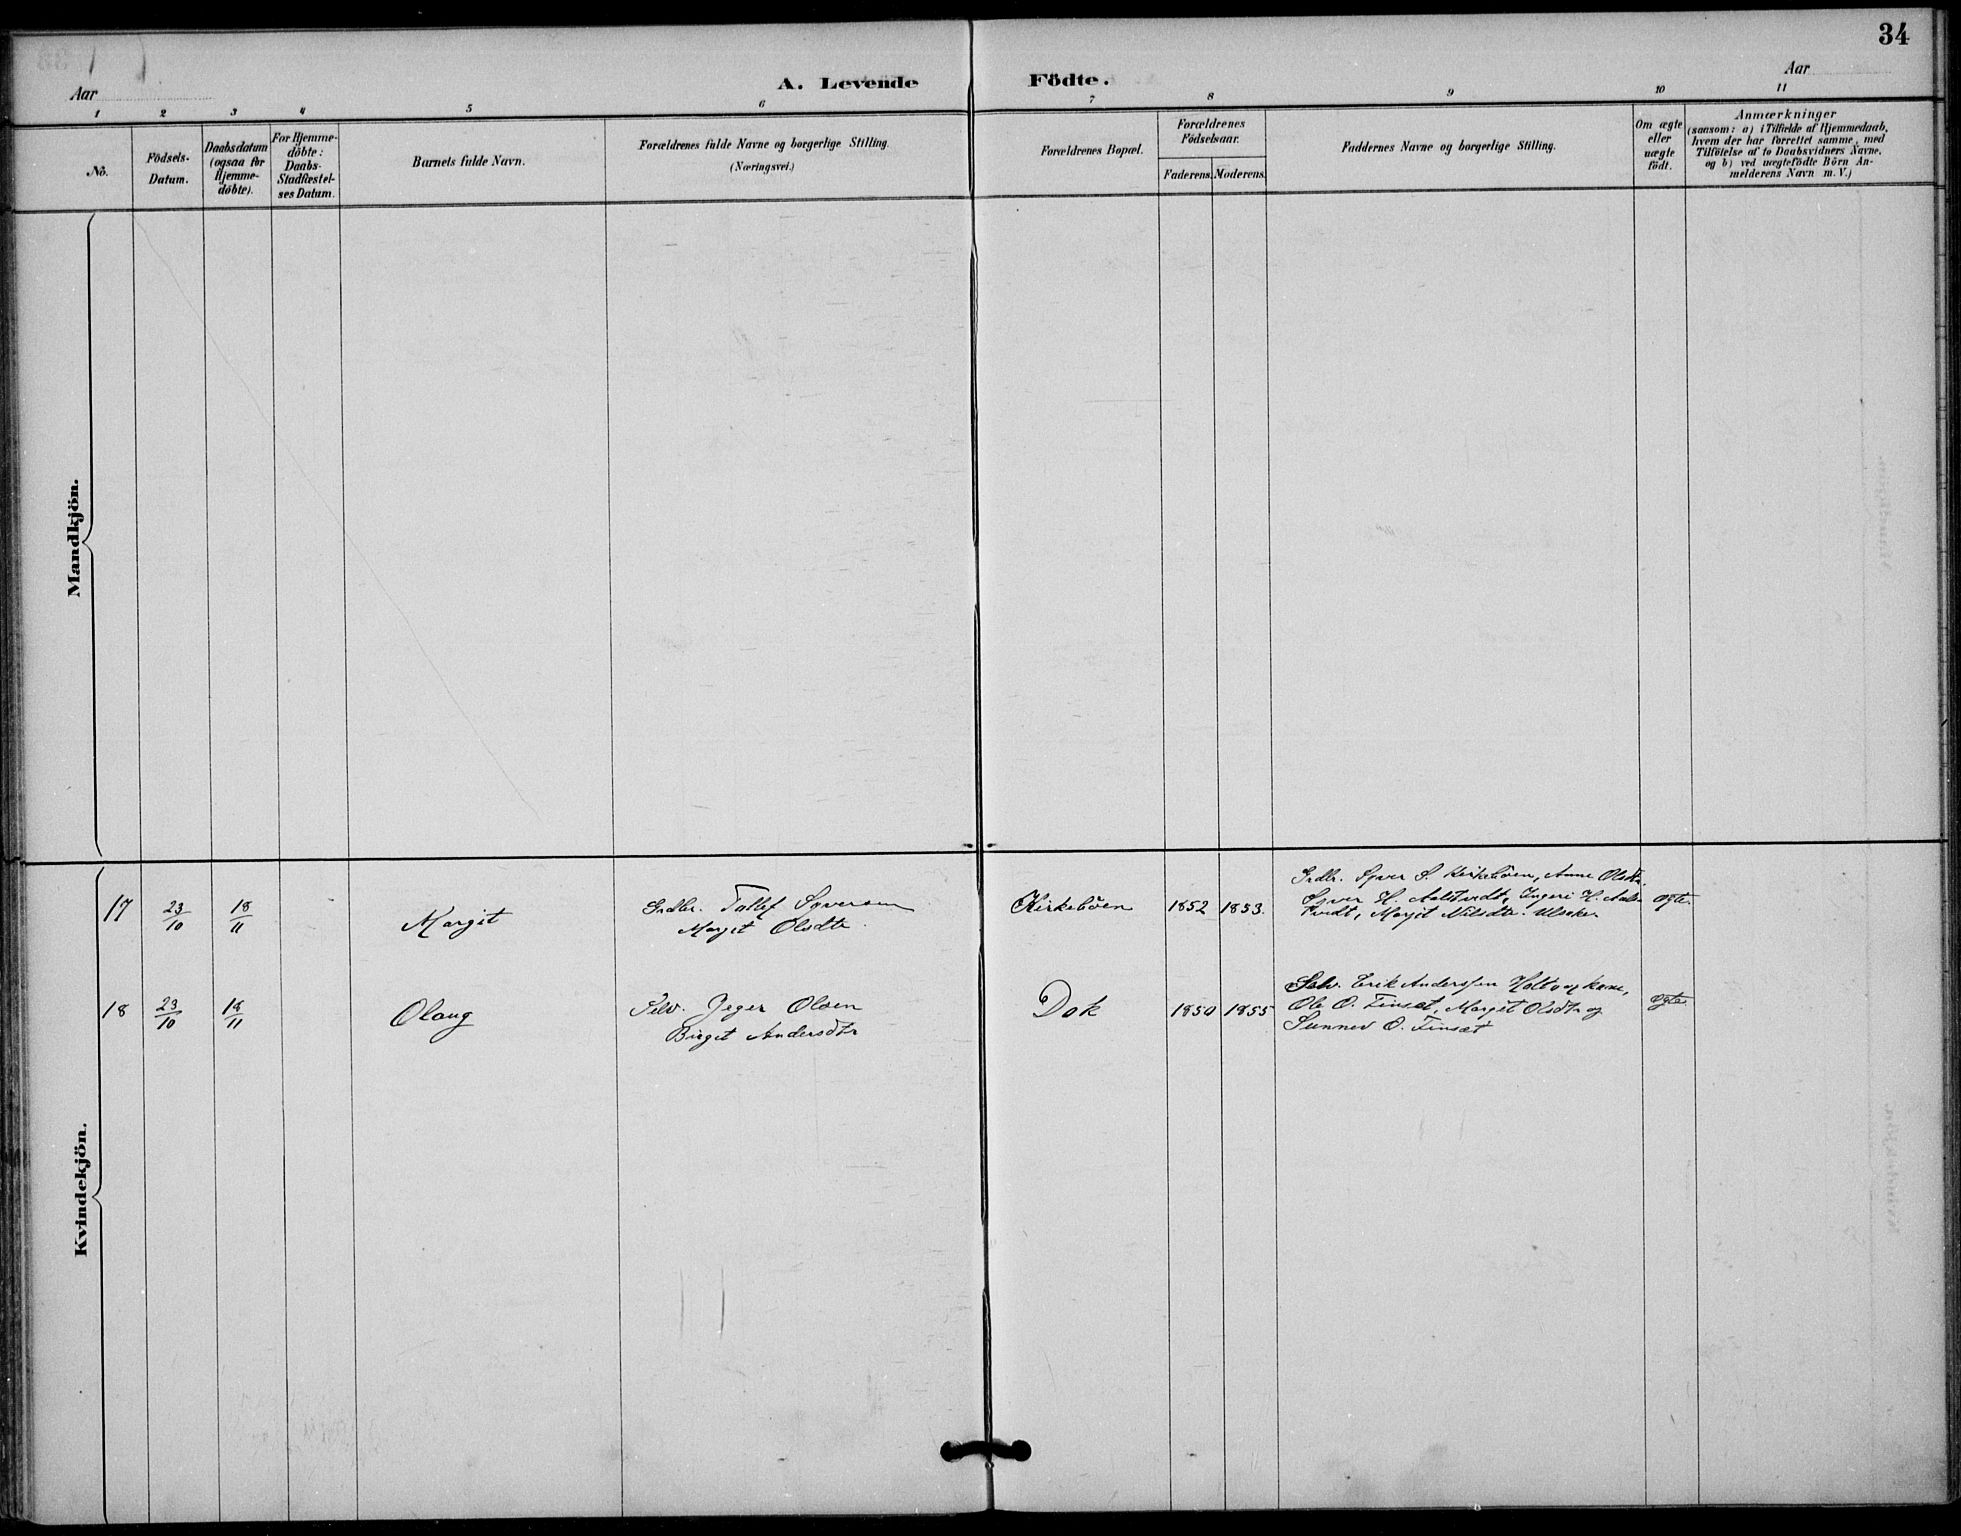 34
Aar
A. Levende Födte.
Aar
1 2 3 4 5 6 7 8 9 10 11
No.
Födsels-
Datum.
Daabsdatum
(ogsaa for
Hjemme-
döbte).
For Hjemme-
döbte:
Daabs-
Stadfæstel-
ses Datum.
Barnets fulde Navn.
Forældrenes fulde Navne og borgerlige Stilling.
(Næringsvei.)
Forældrenes Bopæl.
Forældrenes
Födselsaar.
Faderens. Moderens.
Faddernes Navne og borgerlige Stilling.
Om ægte
eller
uægte
födt.
Anmærkninger
(saasom: a) i Tilfælde af Hjemmedaab,
hvem der har forrettet samme, med
Tilföielse af to Daabsvidners Navne,
og b) ved uægtefödte Börn An-
melderens Navn m. V.)
Mandkjön.
Kvindekjön.
17
23/10
18/11
Margit
Tollef Syversen
Margit Olsdtr.
Kirkeböen
1852
1853.
Syver S. Kirkeböen, Anne Olsdtr.
Syver H. Ingeri H.
Margit Nilsdtr.
ægte.
18
23/10
18/11
Olaug
Selv. Jeger Olsen
Birgit Andersdtr
Dok
1850
1855
Selv. Erik Anderssen Holto og kone,
Ole O. Finset, Margit Olsdtr og
Sunnev O. Finset
ægte.